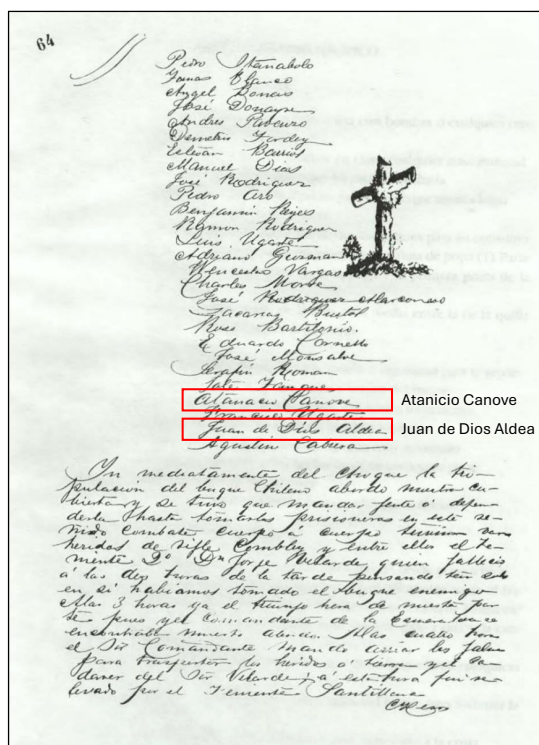 64
Pedro
Tomas Blanco
Angel
José Donayre
Andres
Demetrio
Estevan Barrios
Manuel Dias
José Rodriguez
Pedro Aro
Benjamin Reyes
Ramon Rodriguez
Luis Ugarte
Adriano German
Wenceslao Vargas
Charles Moore
José Rodriguez
Zacarias Bustos
Roso Bartilonio.
Eduardo Cornello
José Monsalve
Serafin Roman
José
Atanacio Canove Atanicio Canove
Francisco Ugarte
Juan de Dios Aldea Juan de Dios Aldea
Agustin Cabrera
In mediatamente del choque la tri-
pulasion del buque Chileno abordo nuestra cu-
bierta y se tuvo que mandar jente á defen-
derla hasta tomarlos prisioneros en este re-
ñido combate cuerpo á cuerpo varios
heridos de rifle Combley y entre ellos el te-
niente 2º Dn Jorge Velarde quien fallecio
á las dos horas de la tarde pensando
en si habiamos tomado el buque enemigo
Alas 3 horas ya el triunfo hera de nuestra par-
te pues y el Comandante de la Esmeralda se
encontraba muerto abordo. Alas cuatro horas
el Sor Comandante mando arriar las falúas
para trasportar los heridos á tierra y el ca-
daver del Sor Velarde, á esta hora fui re-
levado por el Teniente Santillana